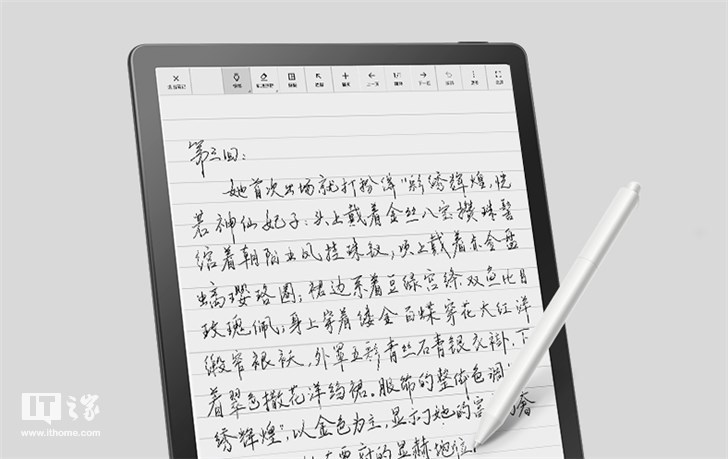 上一页
下一页
第三回:
她首次出场就打扮得"彩绣辉煌,恍
若神仙妃子:头上戴着金丝八宝攒珠髻
绾着朝阳五凤挂珠钗,项上戴着赤金盘
螭璎珞圈;裙边系着豆绿宫绦.双鱼比目
玫瑰佩;身上穿着缕金百蝶穿花大红洋
缎窄裉袄,外罩五彩青丝石青银衣褂,下
着翠色撒花洋绉裙。服饰的整体色调
绣辉煌",以金色为主,显示了她的 奢
贾府的显赫地位.
IT之家
www.ithome.com